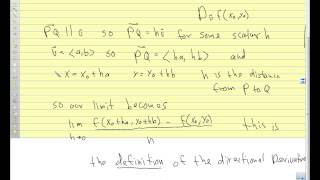 D_û f(x₀,y₀)
PQ ∥ û so PQ = hû for some scalar h
û = <a,b> so PQ = <ha, hb> and
x = x₀ + ha y = y₀ + hb h is the distance
from P to Q
so our limit becomes
lim h→0 f(x₀+ha, y₀+hb) - f(x₀,y₀) / h this is
the definition of the directional Derivative